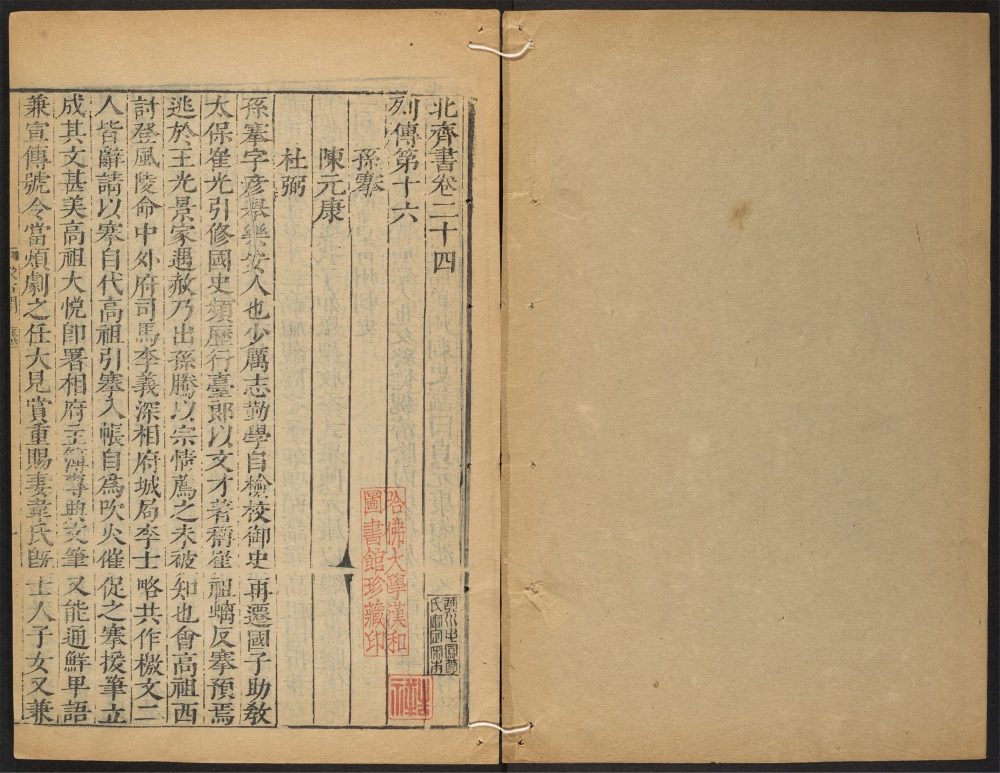 北齊書卷二十四
列傳第十六
孫搴
陳元康
杜弼
孫搴字彥舉樂安人也少厲志勤學自檢校御史再遷國子助教
太保崔光引修國史頻歷行臺郎以文才著稱崔祖螭反搴預焉
逃於王光景家遇赦乃出孫騰以宗情薦之未被知也會高祖西
討登風陵命中外府司馬李義深相府城局李士略共作檄文二
人皆辭請以搴自代高祖引搴入帳自爲吹火催促之搴援筆立
成其文甚美高祖大悅卽署相府主簿專典文筆又能通鮮卑語
兼宣傳號令當煩劇之任大見賞重賜妻韋氏旣士人子女又兼
哈佛大學漢和
圖書館珍藏印